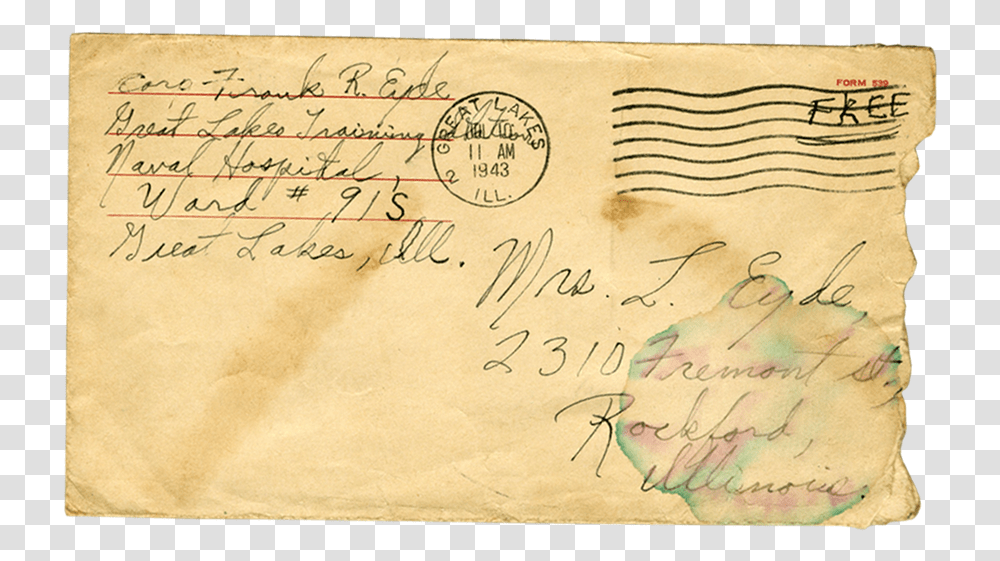 Frank R. Eyde
Great Lakes Training
Naval Hospital,
Ward # 91S
Great Lakes, Ill.
GREAT LAKES
11 AM
1943
2 ILL.
FORM 539
FREE
Mrs. L. Eyde,
2310 Fremont St,
Rockford,
Illinois.